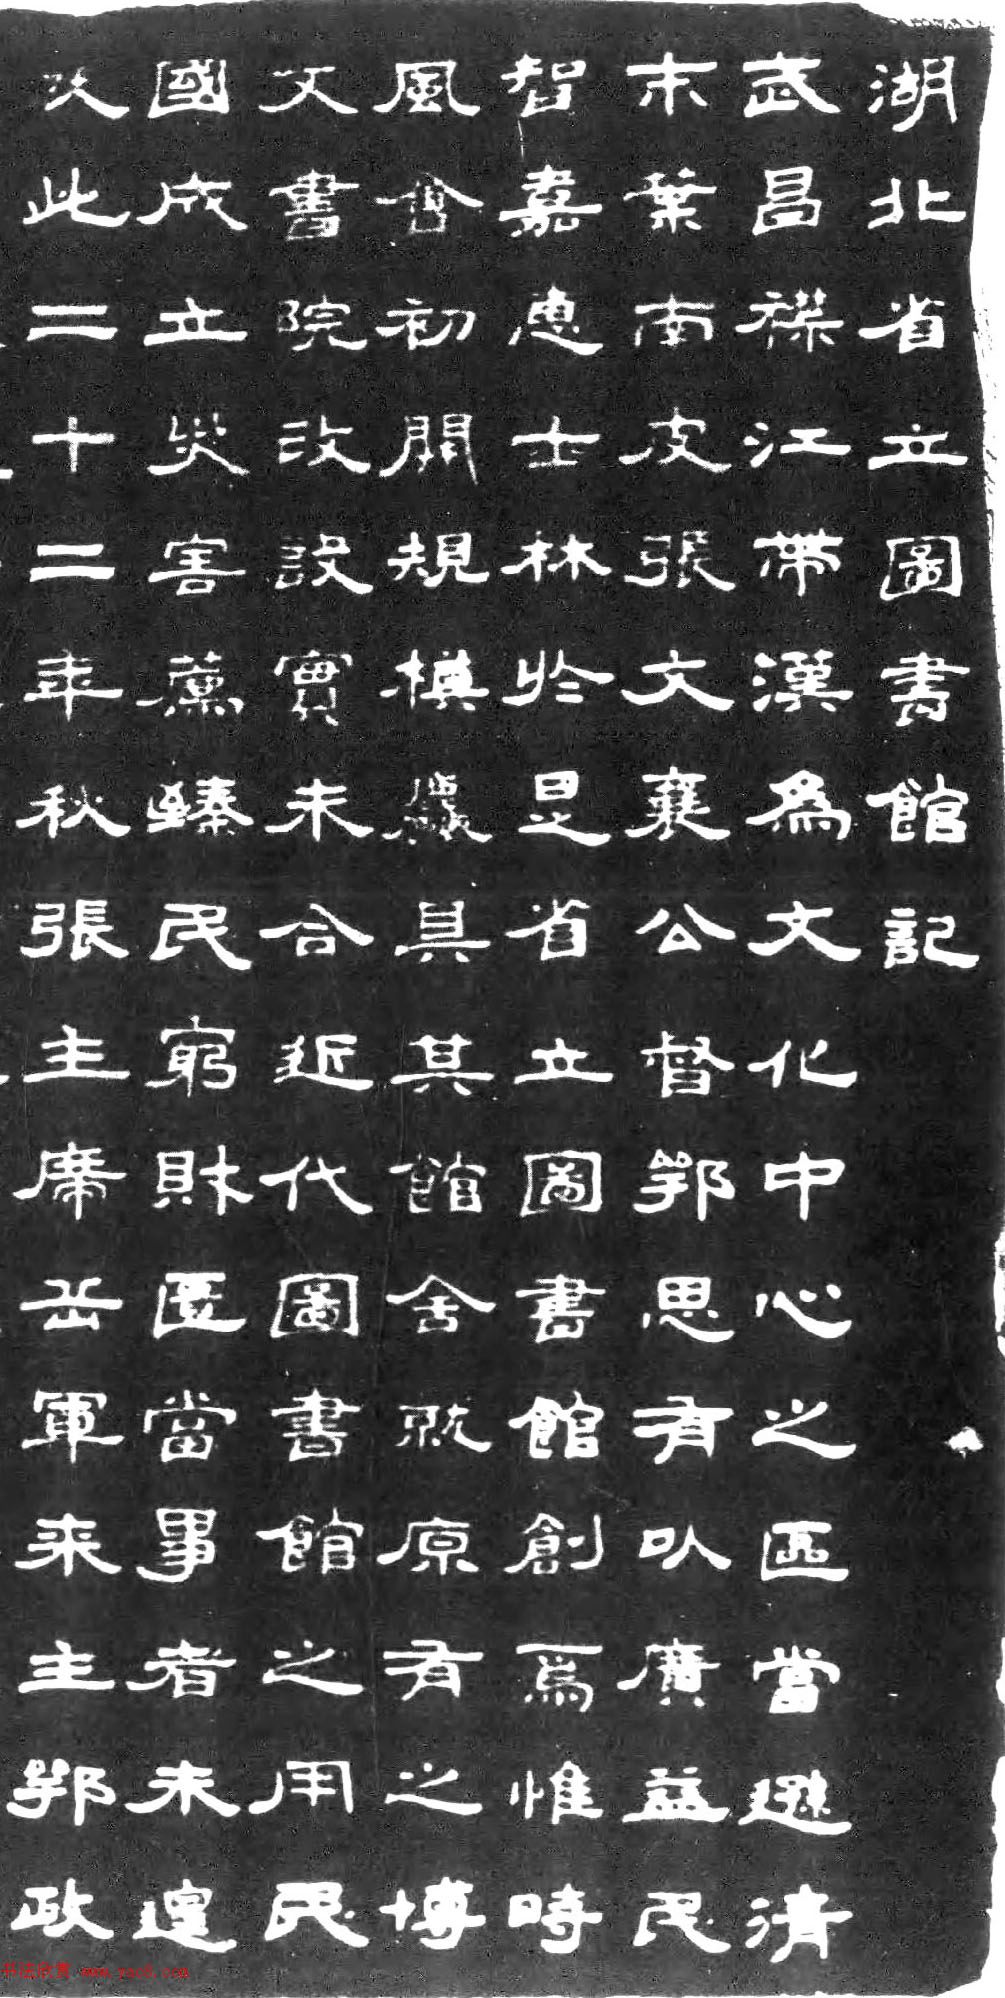 湖北省立圖書館記
武昌襟江帶漢為文化中心之區當遜清
末葉南皮張文襄公督鄂思有以廣益民
智嘉惠士林於是省立圖書館創焉惟時
風會初開規模儀具其館舍就原有之博
文書院改設實未合近代圖書館之用民
國成立災害薦臻民窮財匱當事者未遑
及此二十二年秋張主席岳軍来主鄂政
书法欣赏 www.yac8.com